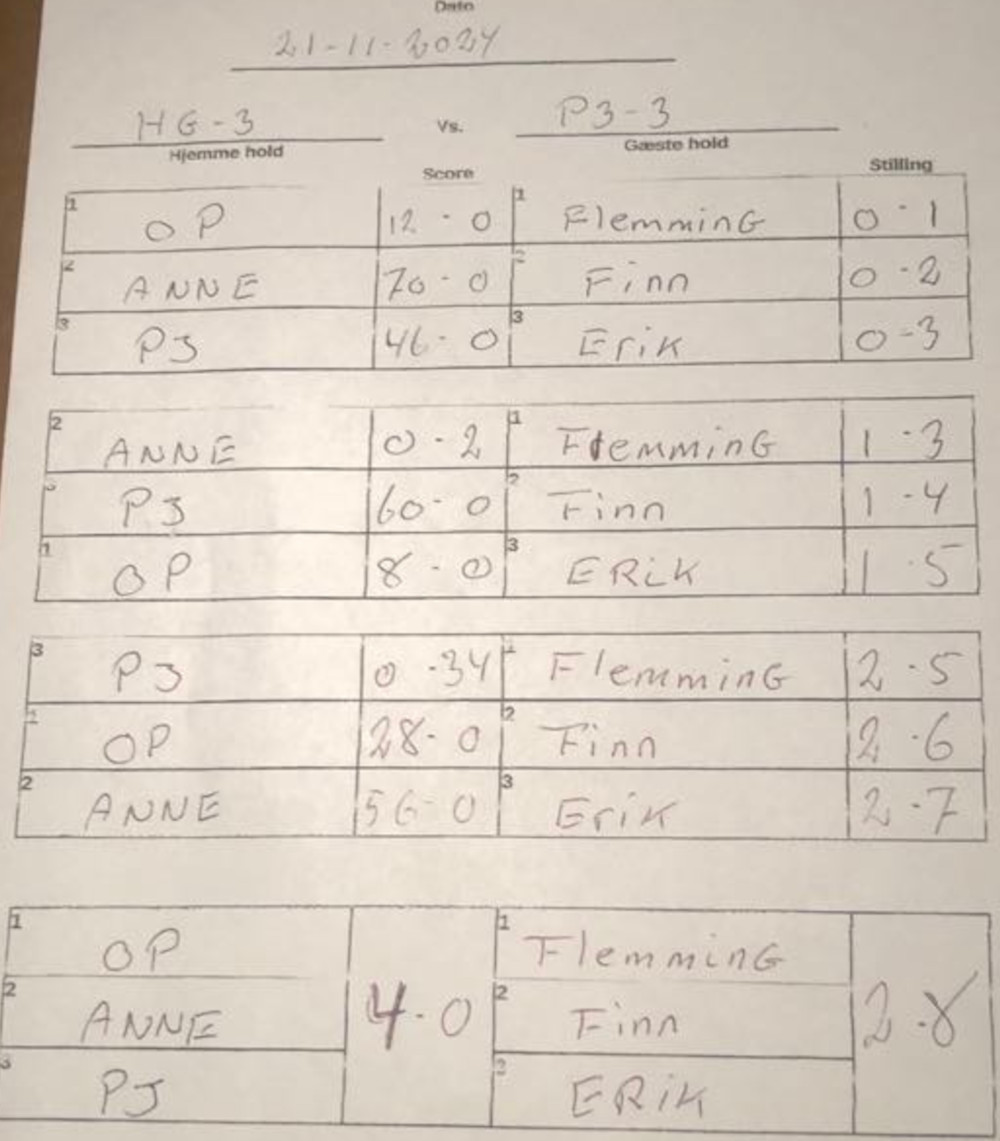 Dato
21-11-2024
HG-3 Vs. P3-3
Hjemme hold Gæste hold
Score Stilling
1 OP 12-0 1 Flemming 0-1
2 ANNE 70-0 2 Finn 0-2
3 PJ 46-0 3 Erik 0-3
2 ANNE 0-2 1 Flemming 1-3
3 PJ 60-0 2 Finn 1-4
1 OP 8-0 3 ERiK 1-5
3 PJ 0-34 1 Flemming 2-5
1 OP 28-0 2 Finn 2-6
2 ANNE 56-0 3 Erik 2-7
1 OP 1 Flemming
2 ANNE 4-0 2 Finn 2-8
3 PJ 3 ERiK